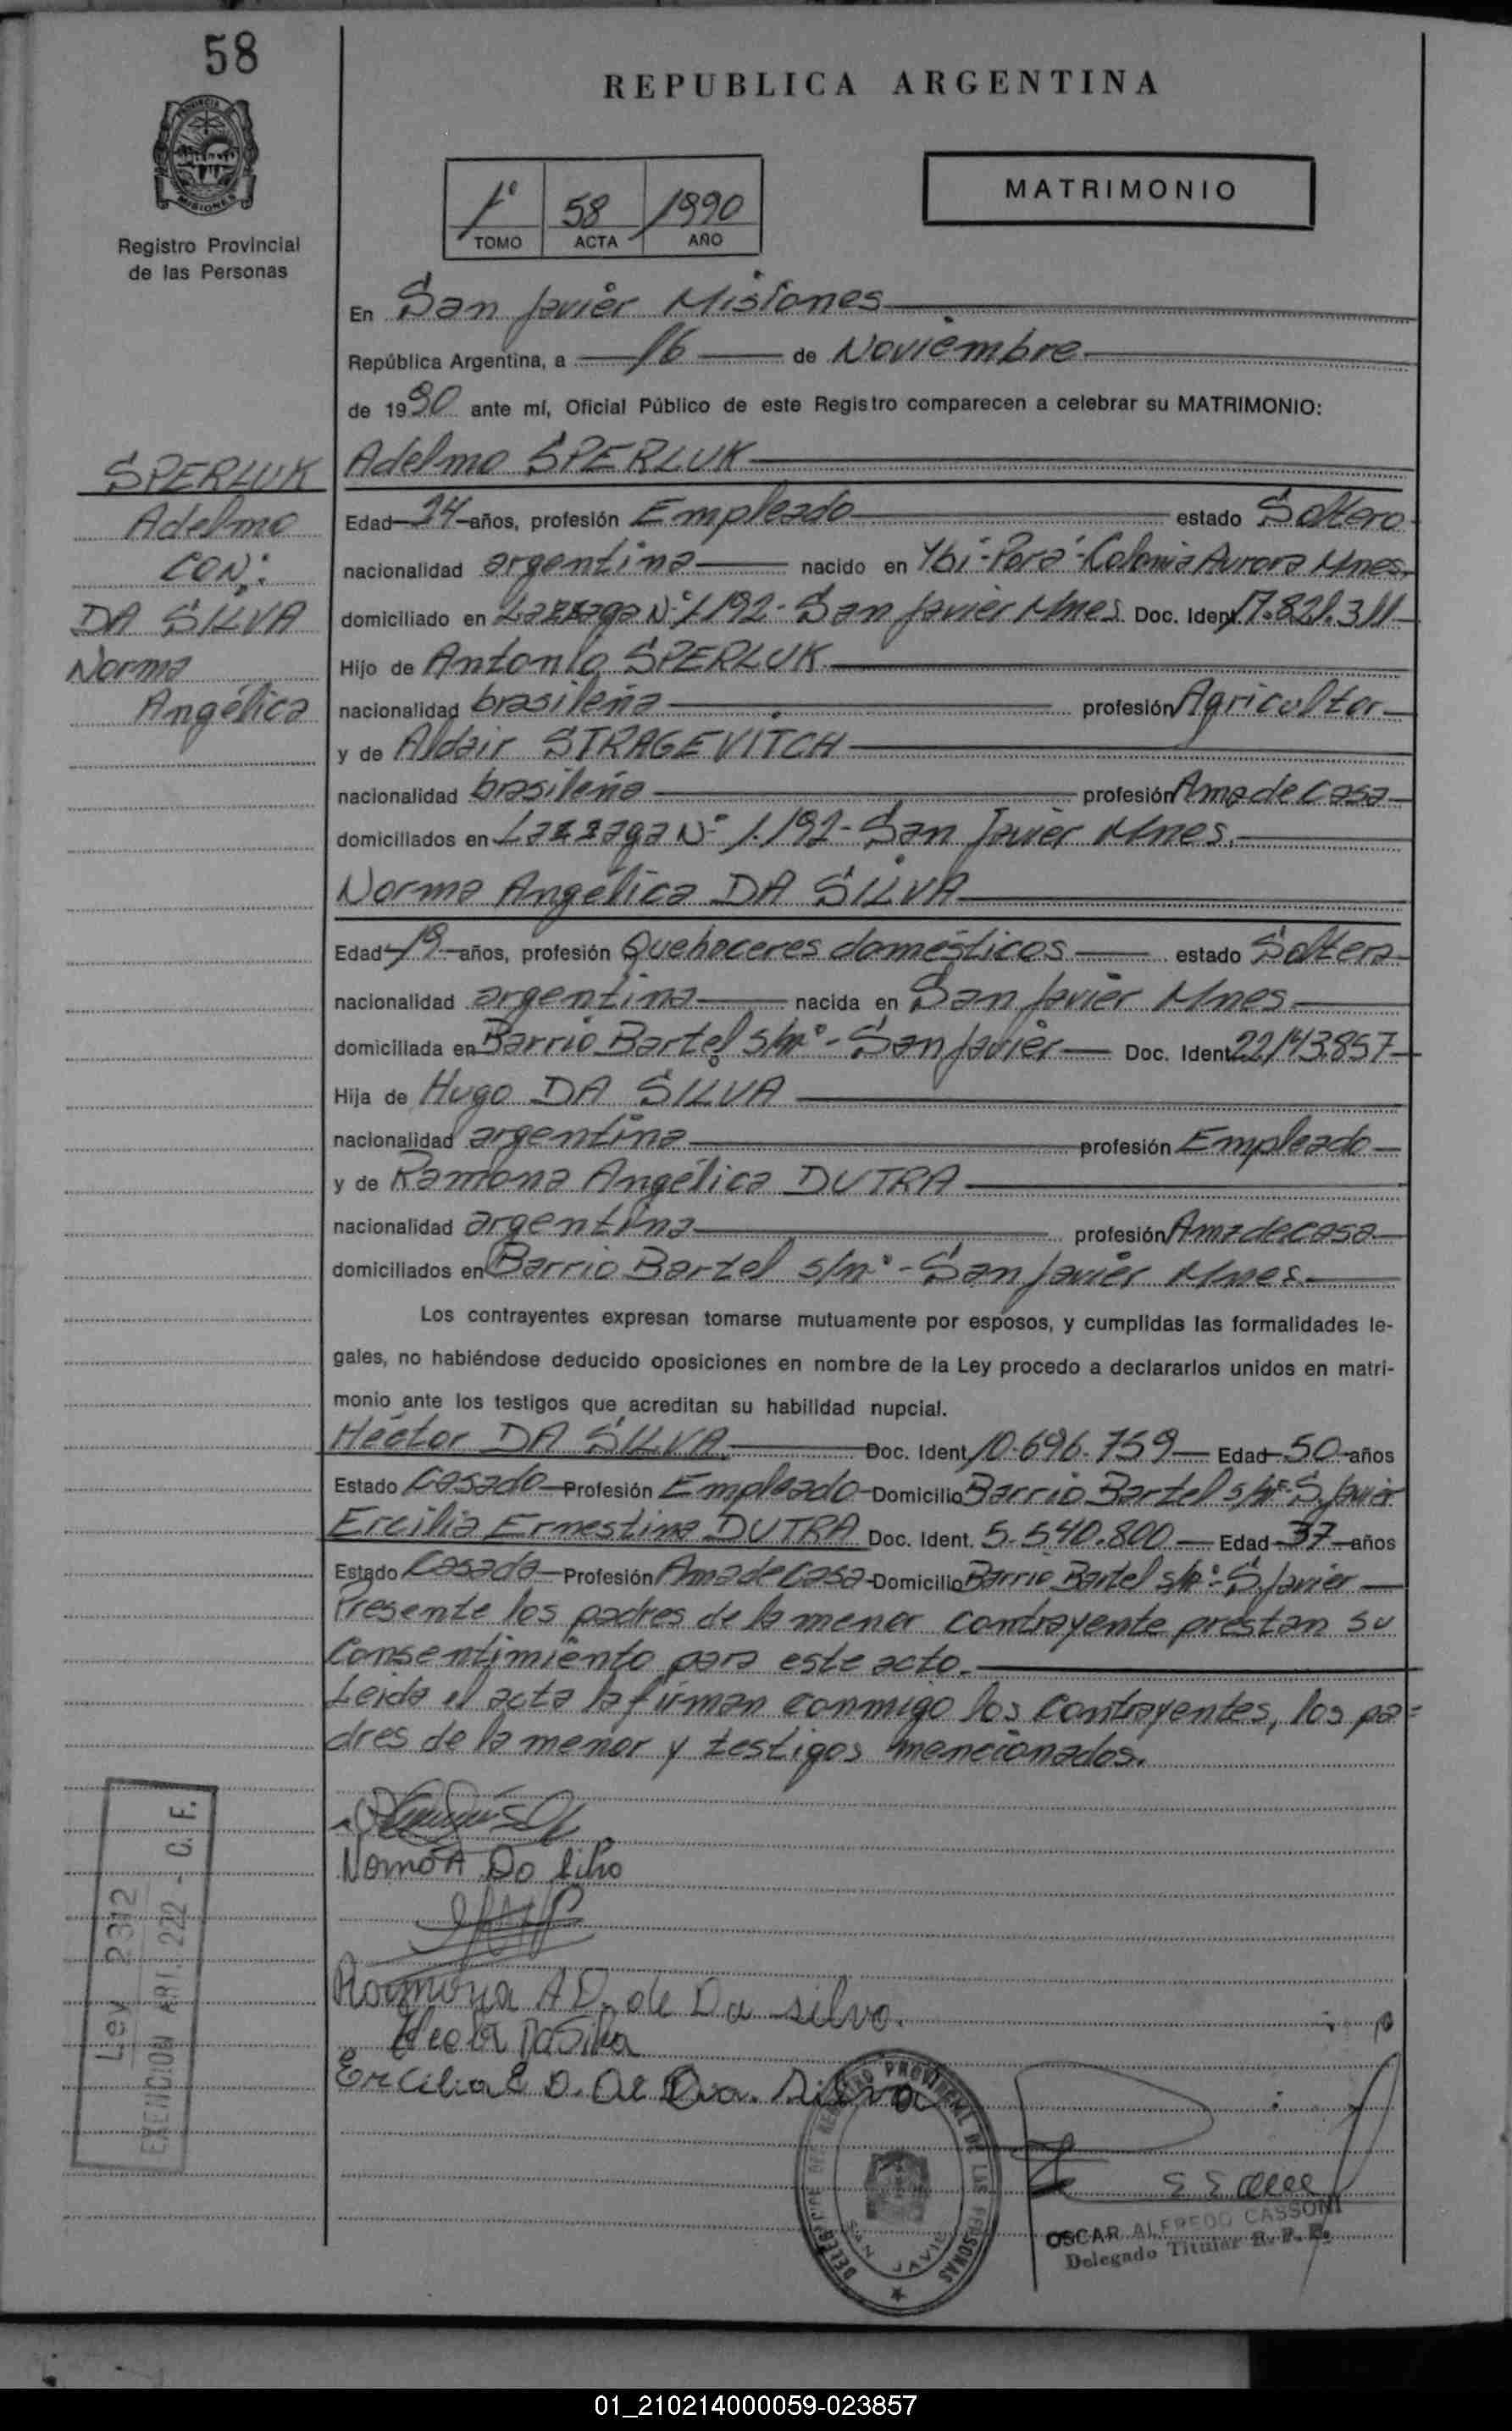 58
REPUBLICA ARGENTINA
PROVINCIA
MISIONES
Registro Provincial
de las Personas
1º 58 1990
TOMO ACTA AÑO
MATRIMONIO
En San Javier Misiones
República Argentina, a 16 de Noviembre
de 1990 ante mí, Oficial Público de este Registro comparecen a celebrar su MATRIMONIO:
SPERLUK
Adelmo
CON:
DA SILVA
Norma
Angélica
Adelmo SPERLUK
Edad 24 años, profesión Empleado estado Soltero
nacionalidad argentina nacido en Ybi-Porá-Colonia Aurora Mnes.
domiciliado en Nº 1.192- San Javier Mnes. Doc. Ident. 17.821.311
Hijo de Antonio SPERLUK
nacionalidad brasileña profesión Agricultor
y de Aldair STRAGEVITCH
nacionalidad brasileña profesión Ama de casa
domiciliados en Nº 1.192- San Javier Mnes.
Norma Angélica DA SILVA
Edad 19 años, profesión Quehaceres domésticos estado Soltera
nacionalidad argentina nacida en San Javier Mnes
domiciliada en Barrio Bartel s/nº- San Javier Doc. Ident. 22.143.857
Hija de Hugo DA SILVA
nacionalidad argentina profesión Empleado
y de Ramona Angélica DUTRA
nacionalidad argentina profesión Ama de casa
domiciliados en Barrio Bartel s/nº- San Javier Mnes.
Los contrayentes expresan tomarse mutuamente por esposos, y cumplidas las formalidades le-
gales, no habiéndose deducido oposiciones en nombre de la Ley procedo a declararlos unidos en matri-
monio ante los testigos que acreditan su habilidad nupcial.
Héctor DA SILVA Doc. Ident. 10.696.759 Edad 50 años
Estado Casado Profesión Empleado Domicilio Barrio Bartel s/nº S. Javier
Ercilia Ernestina DUTRA Doc. Ident. 5.540.800 Edad 37 años
Estado Casada Profesión Ama de casa Domicilio Barrio Bartel s/nº- S. Javier
Presente los padres de la menor contrayente prestan su
Consentimiento para este acto.
Leida el acta la firman conmigo los contrayentes, los pa=
dres de la menor y testigos mencionados.
Norma A Da Silva
Ramona A D. de Da silva.
Da Silva
Ercilia E D. de Da. Silva
Ley 2312
EXENCION ART. 222 - C. F.
DELEGACION DEL REGISTRO PROVINCIAL DE LAS PERSONAS
SAN JAVIER
OSCAR ALFREDO CASSONI
Delegado Titular R. P. P.
01_210214000059-023857